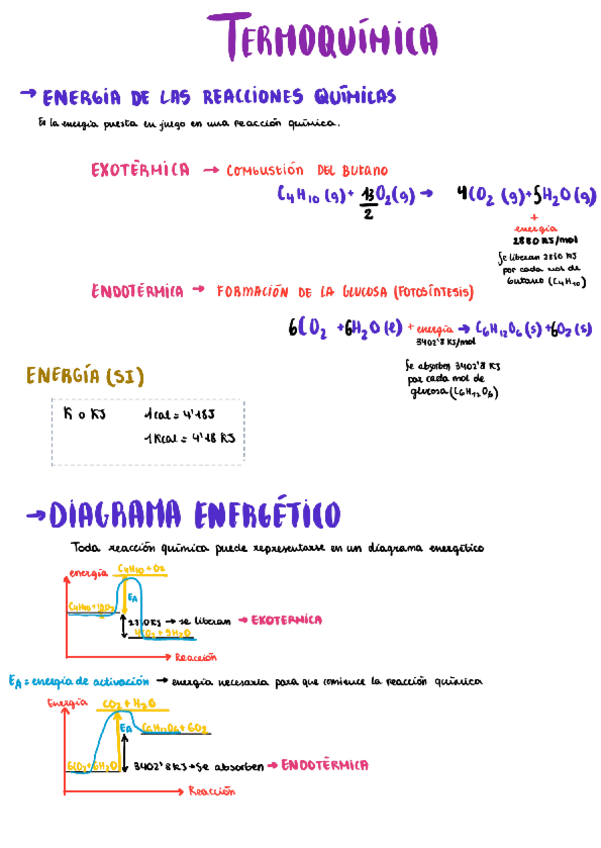 TERMOQUÍMICA
→ ENERGÍA DE LAS REACCIONES QUÍMICAS
Es la energía puesta en juego en una reacción química.
EXOTÉRMICA → COMBUSTIÓN DEL BUTANO
C₄H₁₀ (g) + 13/2 O₂(g) → 4CO₂ (g) + 5H₂O (g)
+
energía
2880 KJ/mol
Se liberan 2880 KJ
por cada mol de
butano (C₄H₁₀)
ENDOTÉRMICA → FORMACIÓN DE LA GLUCOSA (FOTOSÍNTESIS)
6CO₂ + 6H₂O (l) + energía → C₆H₁₂O₆ (s) + 6O₂ (s)
3402'8 KJ/mol
Se absorben 3402'8 KJ
por cada mol de
glucosa (C₆H₁₂O₆)
ENERGÍA (SI)
K o KJ 1cal = 4'18J
1Kcal = 4'18 KJ
→ DIAGRAMA ENERGÉTICO
Toda reacción química puede representarse en un diagrama energético
energía C₄H₁₀ + O₂
EA
C₄H₁₀ +
KJ → se liberan → EXOTÉRMICA
4CO₂ + 5H₂O
Reacción
EA = energía de activación → energía necesaria para que comience la reacción química
Energía CO₂ + H₂O
EA C₆H₁₂O₆ + 6O₂
6CO₂ + 6H₂O 3402'8 KJ → Se absorben → ENDOTÉRMICA
Reacción